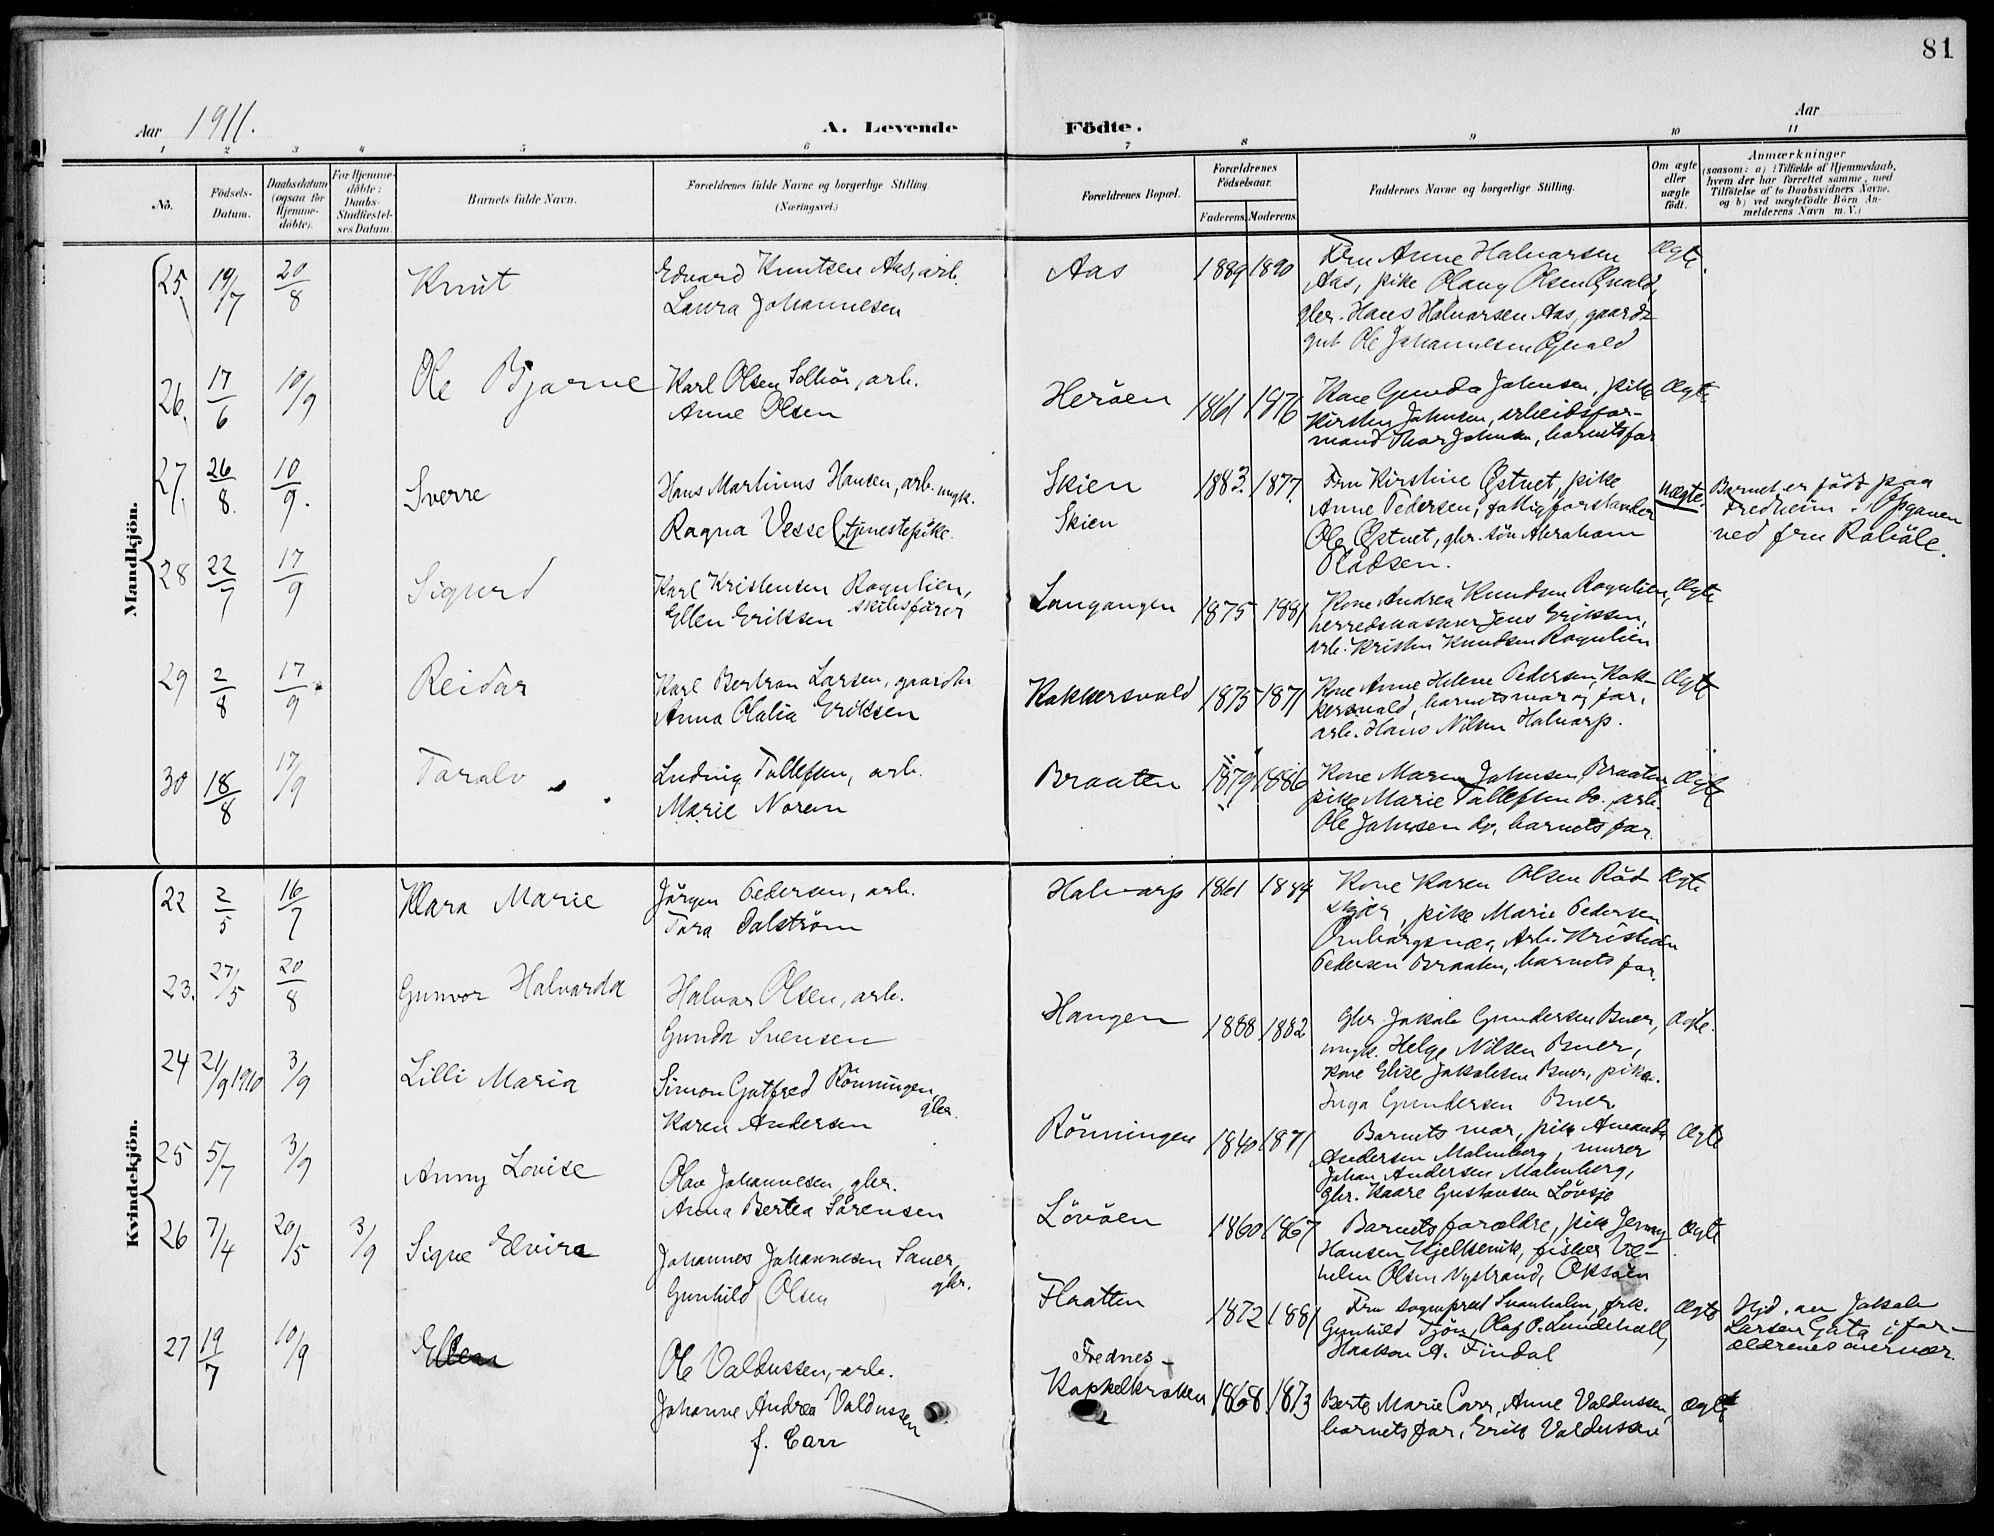 81
Aar 1911.
A. Levende Födte.
Aar
1 2 3 4 5 6 7 8 9 10 11
No.
Födsels-Datum.
Daabsdatum (ogsaa for Hjemmedöbte).
For Hjemmedöbte: Daabs-Stadfæstelses Datum.
Barnets fulde Navn.
Forældrenes fulde Navne og borgerlige Stilling. (Næringsvei.)
Forældrenes Bopæl.
Forældrenes Födselsaar.
Faderens. Moderens.
Faddernes Navne og borgerlige Stilling.
Om ægte eller uægte födt.
Anmærkninger
(saasom: a) i Tilfælde af Hjemmedaab,
hvem der har forrettet samme, med
Tilföielse af to Daabsvidners Navne.
og b) ved uægtefödte Börn An-
melderens Navn m. V.)
Mandkjön.
25. 19/7 20/8 Knut
Edvard Knutsen Aas, arb.
Laura Johannesen
Aas 1889 1890
Fru Anne Halvorsen
Aas, pike Olaug Olsen Ønald,
gbr. Hans Halvorsen Aas, gaards-
gut Ole Johannesen Ønald
Ægte.
26. 17/6 10/9 Ole Bjarne
Karl Olsen, arb.
Anne Olsen
Heröen 1861 1876
Kone Gunda Johnsen, pike
Kirsten Johnsen, arbeidsfor-
mand Thor Johnsen, barnets far
Ægte
27. 26/8. 10/9. Sverre
Hans Martinus Hansen, arb. ungk.
Ragna Vessel (tjenestepike.
Skien 1883. 1877.
Skien
Fru Kirstine Østvet, pike
Anne Pedersen, fattigforstander
Ole Østvet, gbr. sön Abraham
Pladsen.
uægte.
Barnet er födt paa
Fredheim. Opgaven
ved fru
28 22/7 17/9 Sigurd
Karl Kristensen Rognlien,
skibsförer
Ellen Eriksen
Langangen 1875 1881
Kone Andrea Knudsen Rognlien,
herredskasserer Jens Eriksen,
arb. Kristen Knudsen Rognlien
Ægte
29 2/8 17/9 Reidar
Karl Bertran Larsen, gaardbr
Anna Olalia Eriksen
Kokkersvold 1875 1871
Kone Anne Helene Pedersen, Kok-
kersvold, barnets mor og far,
arb. Hans Nilsen Halvarp.
Ægte
30 18/8 17/9 Toralv
Ludvig Tollefsen, arb.
Marie Norem
Braaten 1879 1886
Kone Maren Johnsen, Braaten
pike Marie Tollefsen do. arb.
Ole Johnsen do, barnets far.
Ægte
Kvindekjön.
22 2/5 16/7 Klara Marie
Jörgen Pedersen, arb.
Tora Dalström
Halvarp 1861 1884
Kone Karen Olsen Röd-
skjær, pike Marie Pedersen
Arb. Kristian
Pedersen Braaten, barnets far.
Ægte
23. 27/5 20/8 Gunvor Halvarda
Halvor Olsen, arb.
Gunda Svensen
Haugen 1888 1882
Gbr. Jakob Gundersen Buer,
ungk. Helge Nilsen Buer,
Kone Elise Jakobsen Buer, pike
Inga Gundersen Buer
Ægte.
24 21/9 1910 3/9 Lilli Maria
Simon Gotfred Rönningen,
gbr.
Karen Andersen
Rönningen 1840 1871
Barnets mor, pike Amanda
Andersen Malmberg, murer
Johan Andersen Malmberg,
Gbr. Kaare Gustavsen Lövsjö
Ægte
25 5/7 3/9 Anny Lovise
Olav Johannesen, gbr.
Anna Bertea Sörensen
Lövöen 1860 1867
Barnets forældre, pike Jenny
Hansen Kjelkevik, fisker Vil-
helm Olsen Nystrand, Oksöien
Ægte
26 7/4 20/5 3/9 Signe Elvira
Johannes Johannesen Sauer,
gbr.
Gunhild Olsen
Flaatten 1872 1881
Fru sognepræst Svanholm, frk.
Gunhild Tjön, Olaf P. Lundevall,
Haakon A. Findal
Ægte
Hjd. av Jakob
Larsen Gata i for-
ældrenes nærvær.
27 19/7 10/9 Ellen
Ole Valdussen, arb.
Johanne Andrea Valdussen
f. Carr
Frednes-
Kopkelkroken 1868 1873
Berte Marie Carr, Anne Valdussen,
barnets far, Erik Valdussen
Ægte